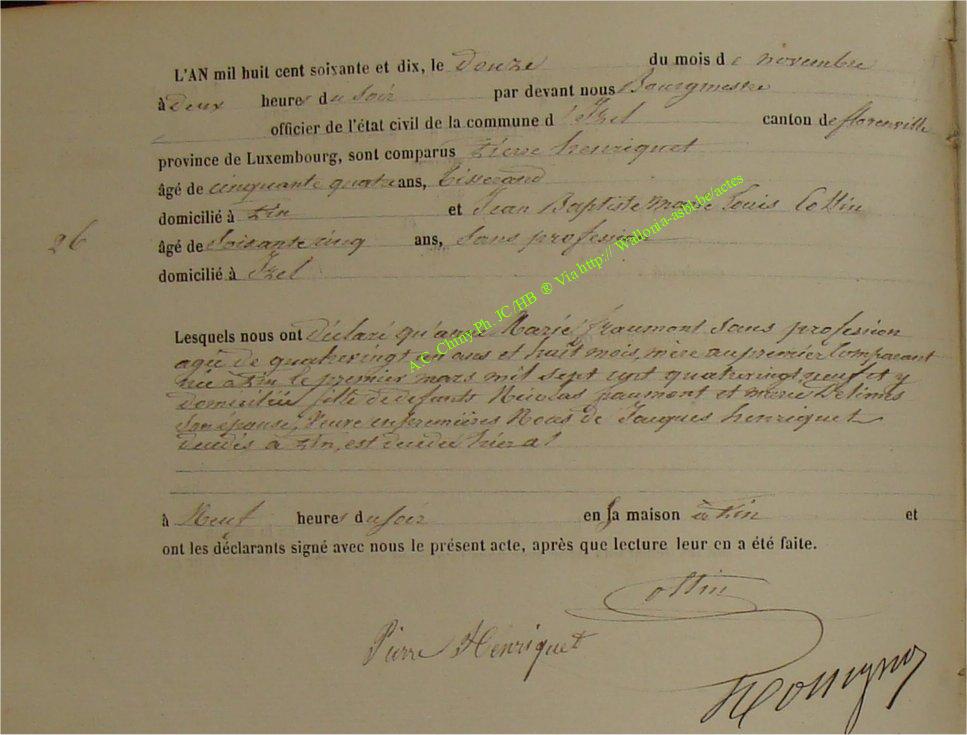 L'AN mil huit cent soixante et dix, le douze du mois de novembre
à deux heures du soir par devant nous Bourgmestre
officier de l'état civil de la commune d'Izel canton de florenville
province de Luxembourg, sont comparus Pierre henriquet
âgé de cinquante quatre ans, tisserand
domicilié à Pin et Jean Baptiste Marie Louis Collin
26
âgé de soisante cinq ans, sans profession
domicilié à Izel
Lesquels nous ont déclaré qu' Marie fraumont sans profession
agée de quatrevingt un ans et huit mois, mère au premier Comparant
née à Pin le premier mars mil sept cent quatrevingt neuf et y
domiciliée fille de defunts Nicolas paumont et marie
son épouse, veuve en premières Noces de Jacques henriquet
décédé à Pin, est décédée hier a
à Neuf heures du soir en sa maison à Pin et
ont les déclarants signé avec nous le présent acte, après que lecture leur en a été faite.
ollin
Pierre Henriquet
Rossignon
A.C. Chiny Ph. JC/HB ® Via http:// Wallonia-asbl.be/actes